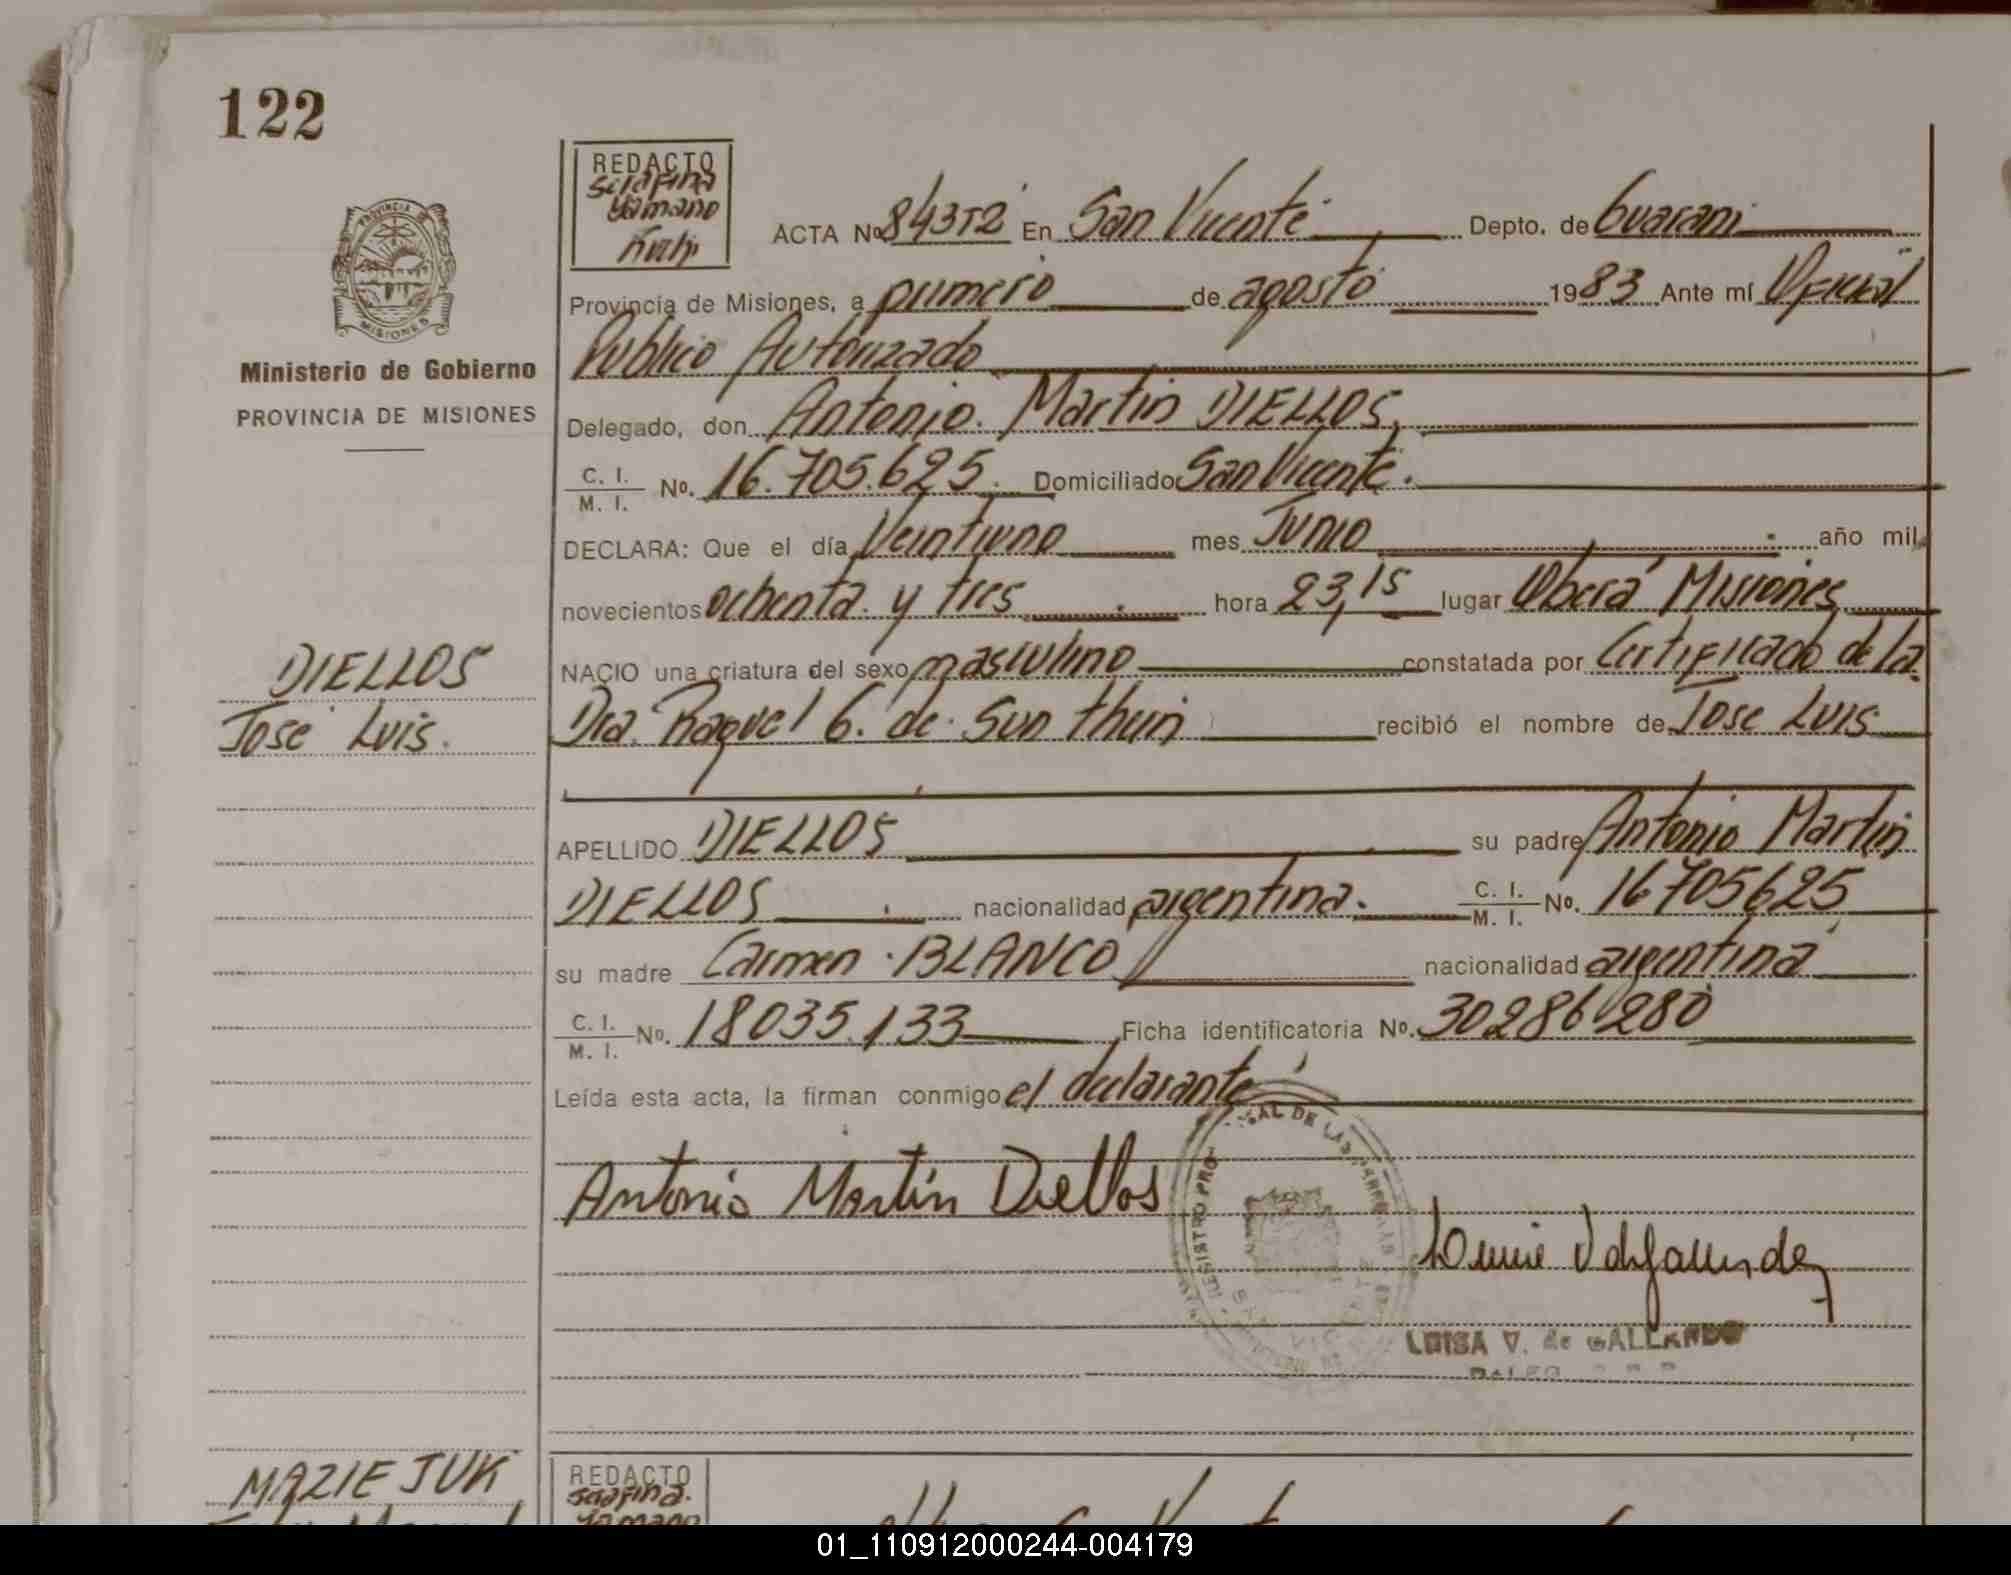 122
REDACTO
Serafina
Yamano
ACTA Nº 84352 En San Vicente Depto. de Guarani
Provincia de Misiones, a primero de agosto 1983 Ante mí Oficial
Publico Autorizado
Delegado, don Antonio Martin DIELLOS,
C. I.
M. I. No. 16.705.625. Domiciliado San Vicente.
DECLARA: Que el día Veintiuno mes JUNIO año mil
novecientos ochenta y tres hora 23,15 lugar Oberá Misiones
NACIO una criatura del sexo masculino constatada por Certificado de la
Dra. Raquel G. de Sun recibió el nombre de Jose Luis
APELLIDO DIELLOS su padre Antonio Martin
DIELLOS nacionalidad argentina. C. I.
M. I. No. 16705625
su madre Carmen BLANCO nacionalidad argentina
C. I.
M. I. No. 18035.133 Ficha identificatoria No. 30286280
Leída esta acta, la firman conmigo el declarante
Antonio Martín Diellos
LUISA V. de GALLARDO
PROVINCIA DE
MISIONES
Ministerio de Gobierno
PROVINCIA DE MISIONES
DIELLOS
José Luis.
MAZIEJUK
REDACTO
Serafina.
Yamano
01_110912000244-004179